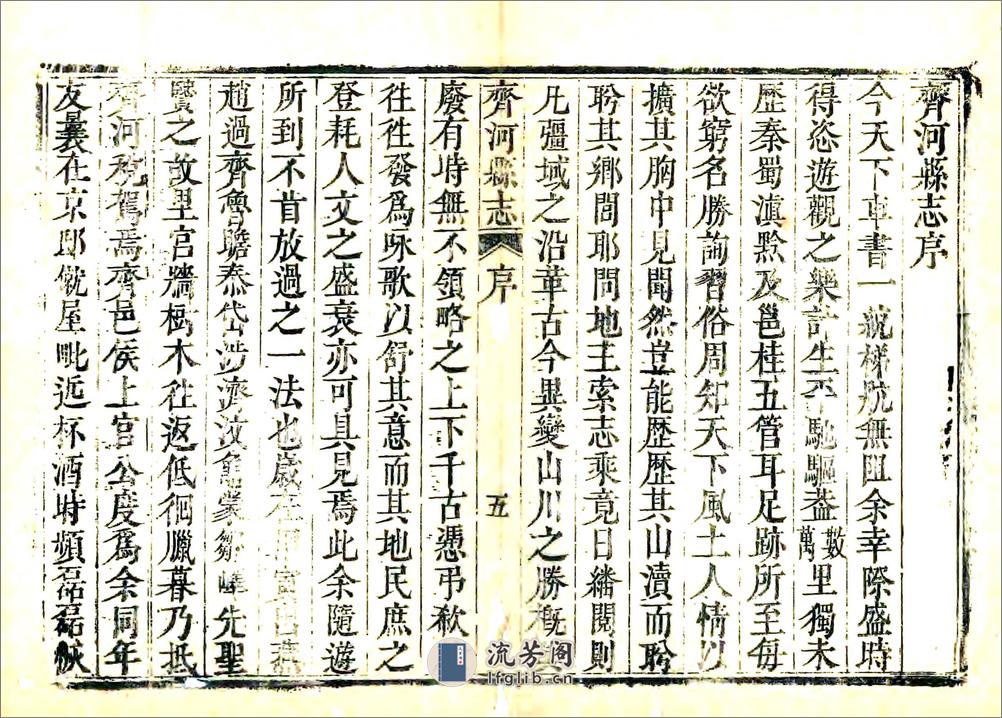 齊河縣志序
今天下車書一統梯航無阻余幸際盛時
得恣遊觀之樂計生平馳驅葢數萬里獨未
歷秦蜀滇黔及邕桂五管耳足跡所至每
欲窮名勝詢習俗周知天下風土人情以
擴其胸中見聞然豈能歷歷其山瀆而聆
聆其鄉閭耶問地主索志乘竟日繙閱則
凡疆域之沿革古今異變山川之勝概
齊河縣志 序 五
廢有時無不領略之上下千古憑弔欷
往往發爲咏歌以舒其意而其地民庶之
登耗人文之盛衰亦可具見焉此余隨遊
所到不肯放過之一法也歲在
趙過齊魯瞻泰岱涉濟汶龜蒙鄒嶧先聖
賢之故里宮牆樹木往返低徊臘暮乃抵
齊河稅駕焉齊邑侯上官公度爲余同年
友曩在京邸僦屋毗近杯酒時頻磊磊猷
流芳阁
lfglib.cn